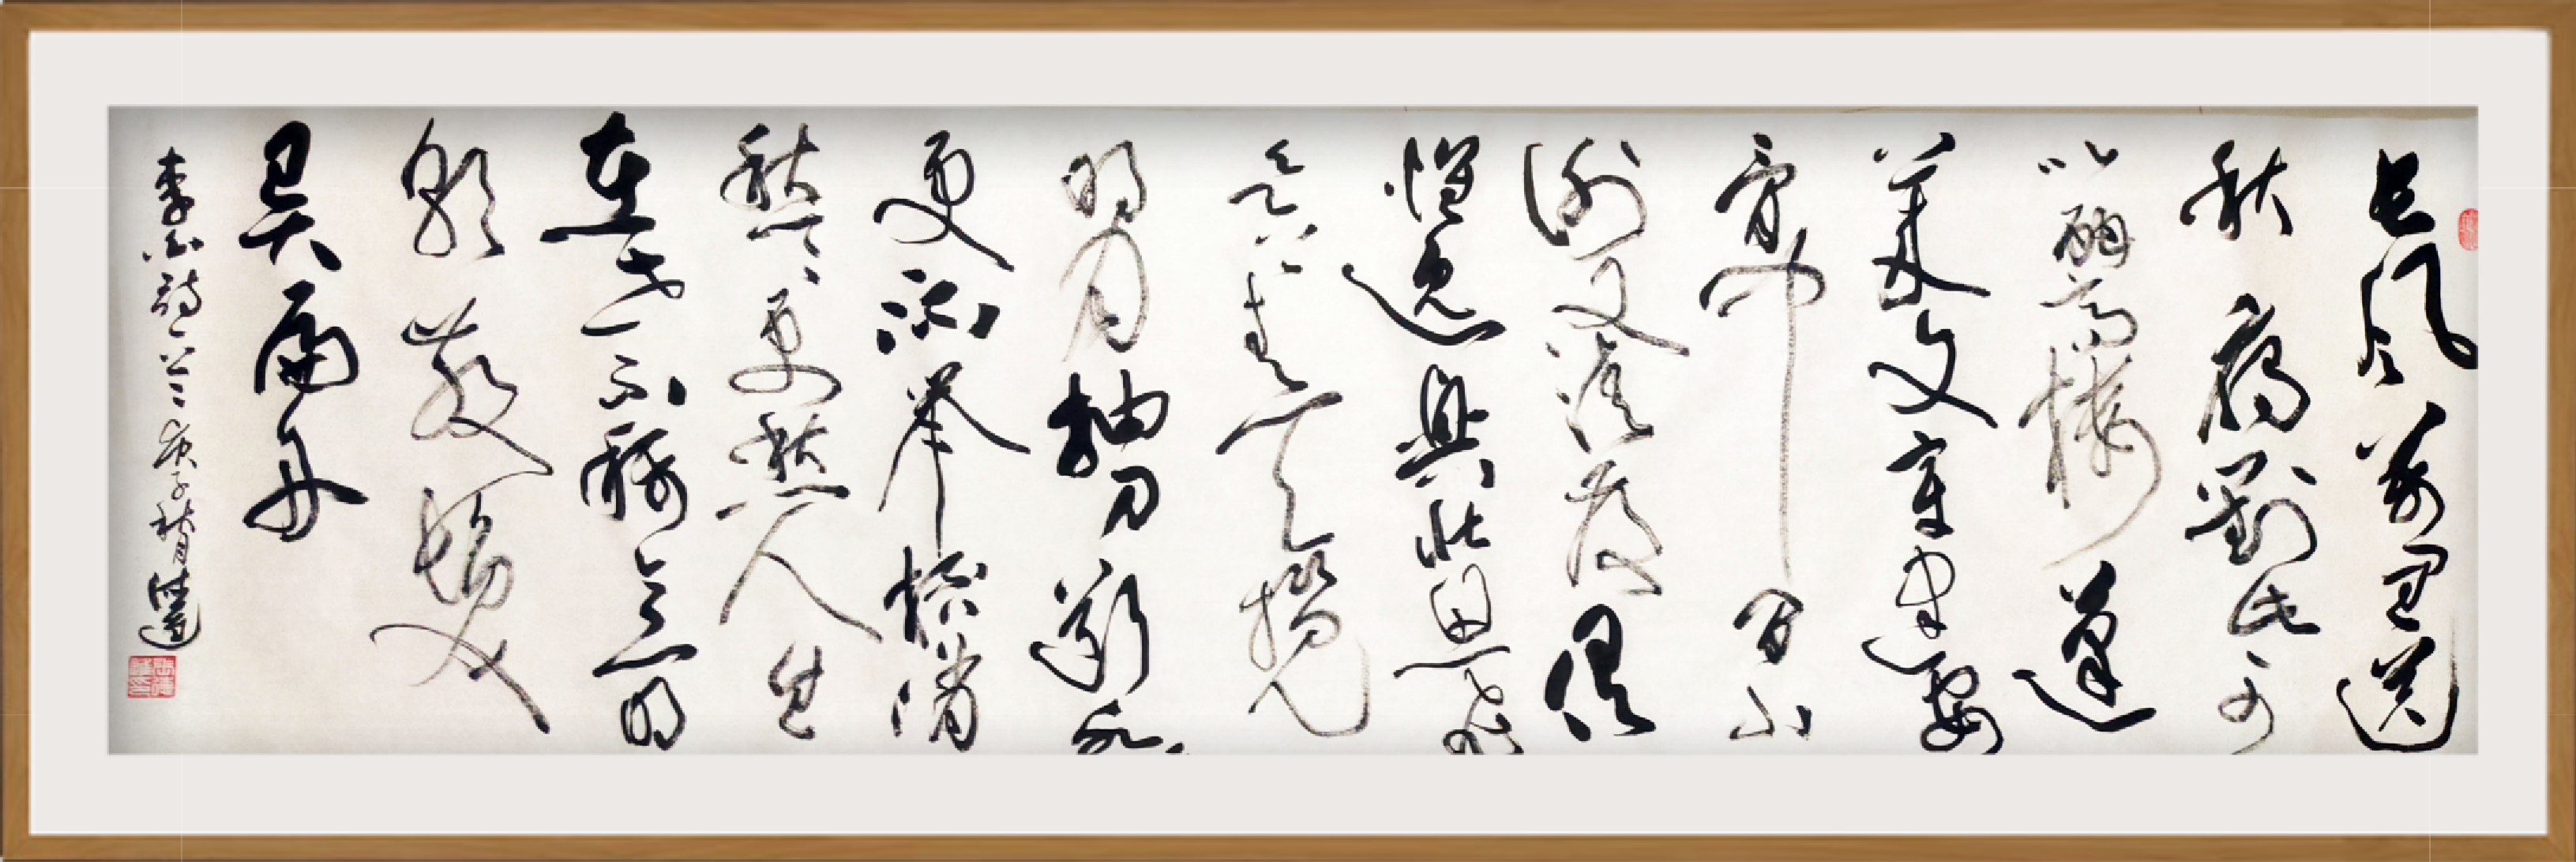 長風萬里送
秋雁對此可
以酣高樓蓬
萊文章建安
骨中间小
謝又清發俱
懷逸興壯思飛
欲上青天攬
明月抽刀斷水〻
更流舉杯消
愁〻更愁人生
在世不稱意明
朝散髮
弄扁舟
李白詩一首 庚子秋月